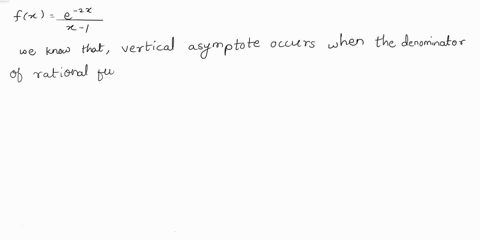 f(x) = e^-2x / x-1
we know that, vertical asymptote occurs when the denominator
of rational fu